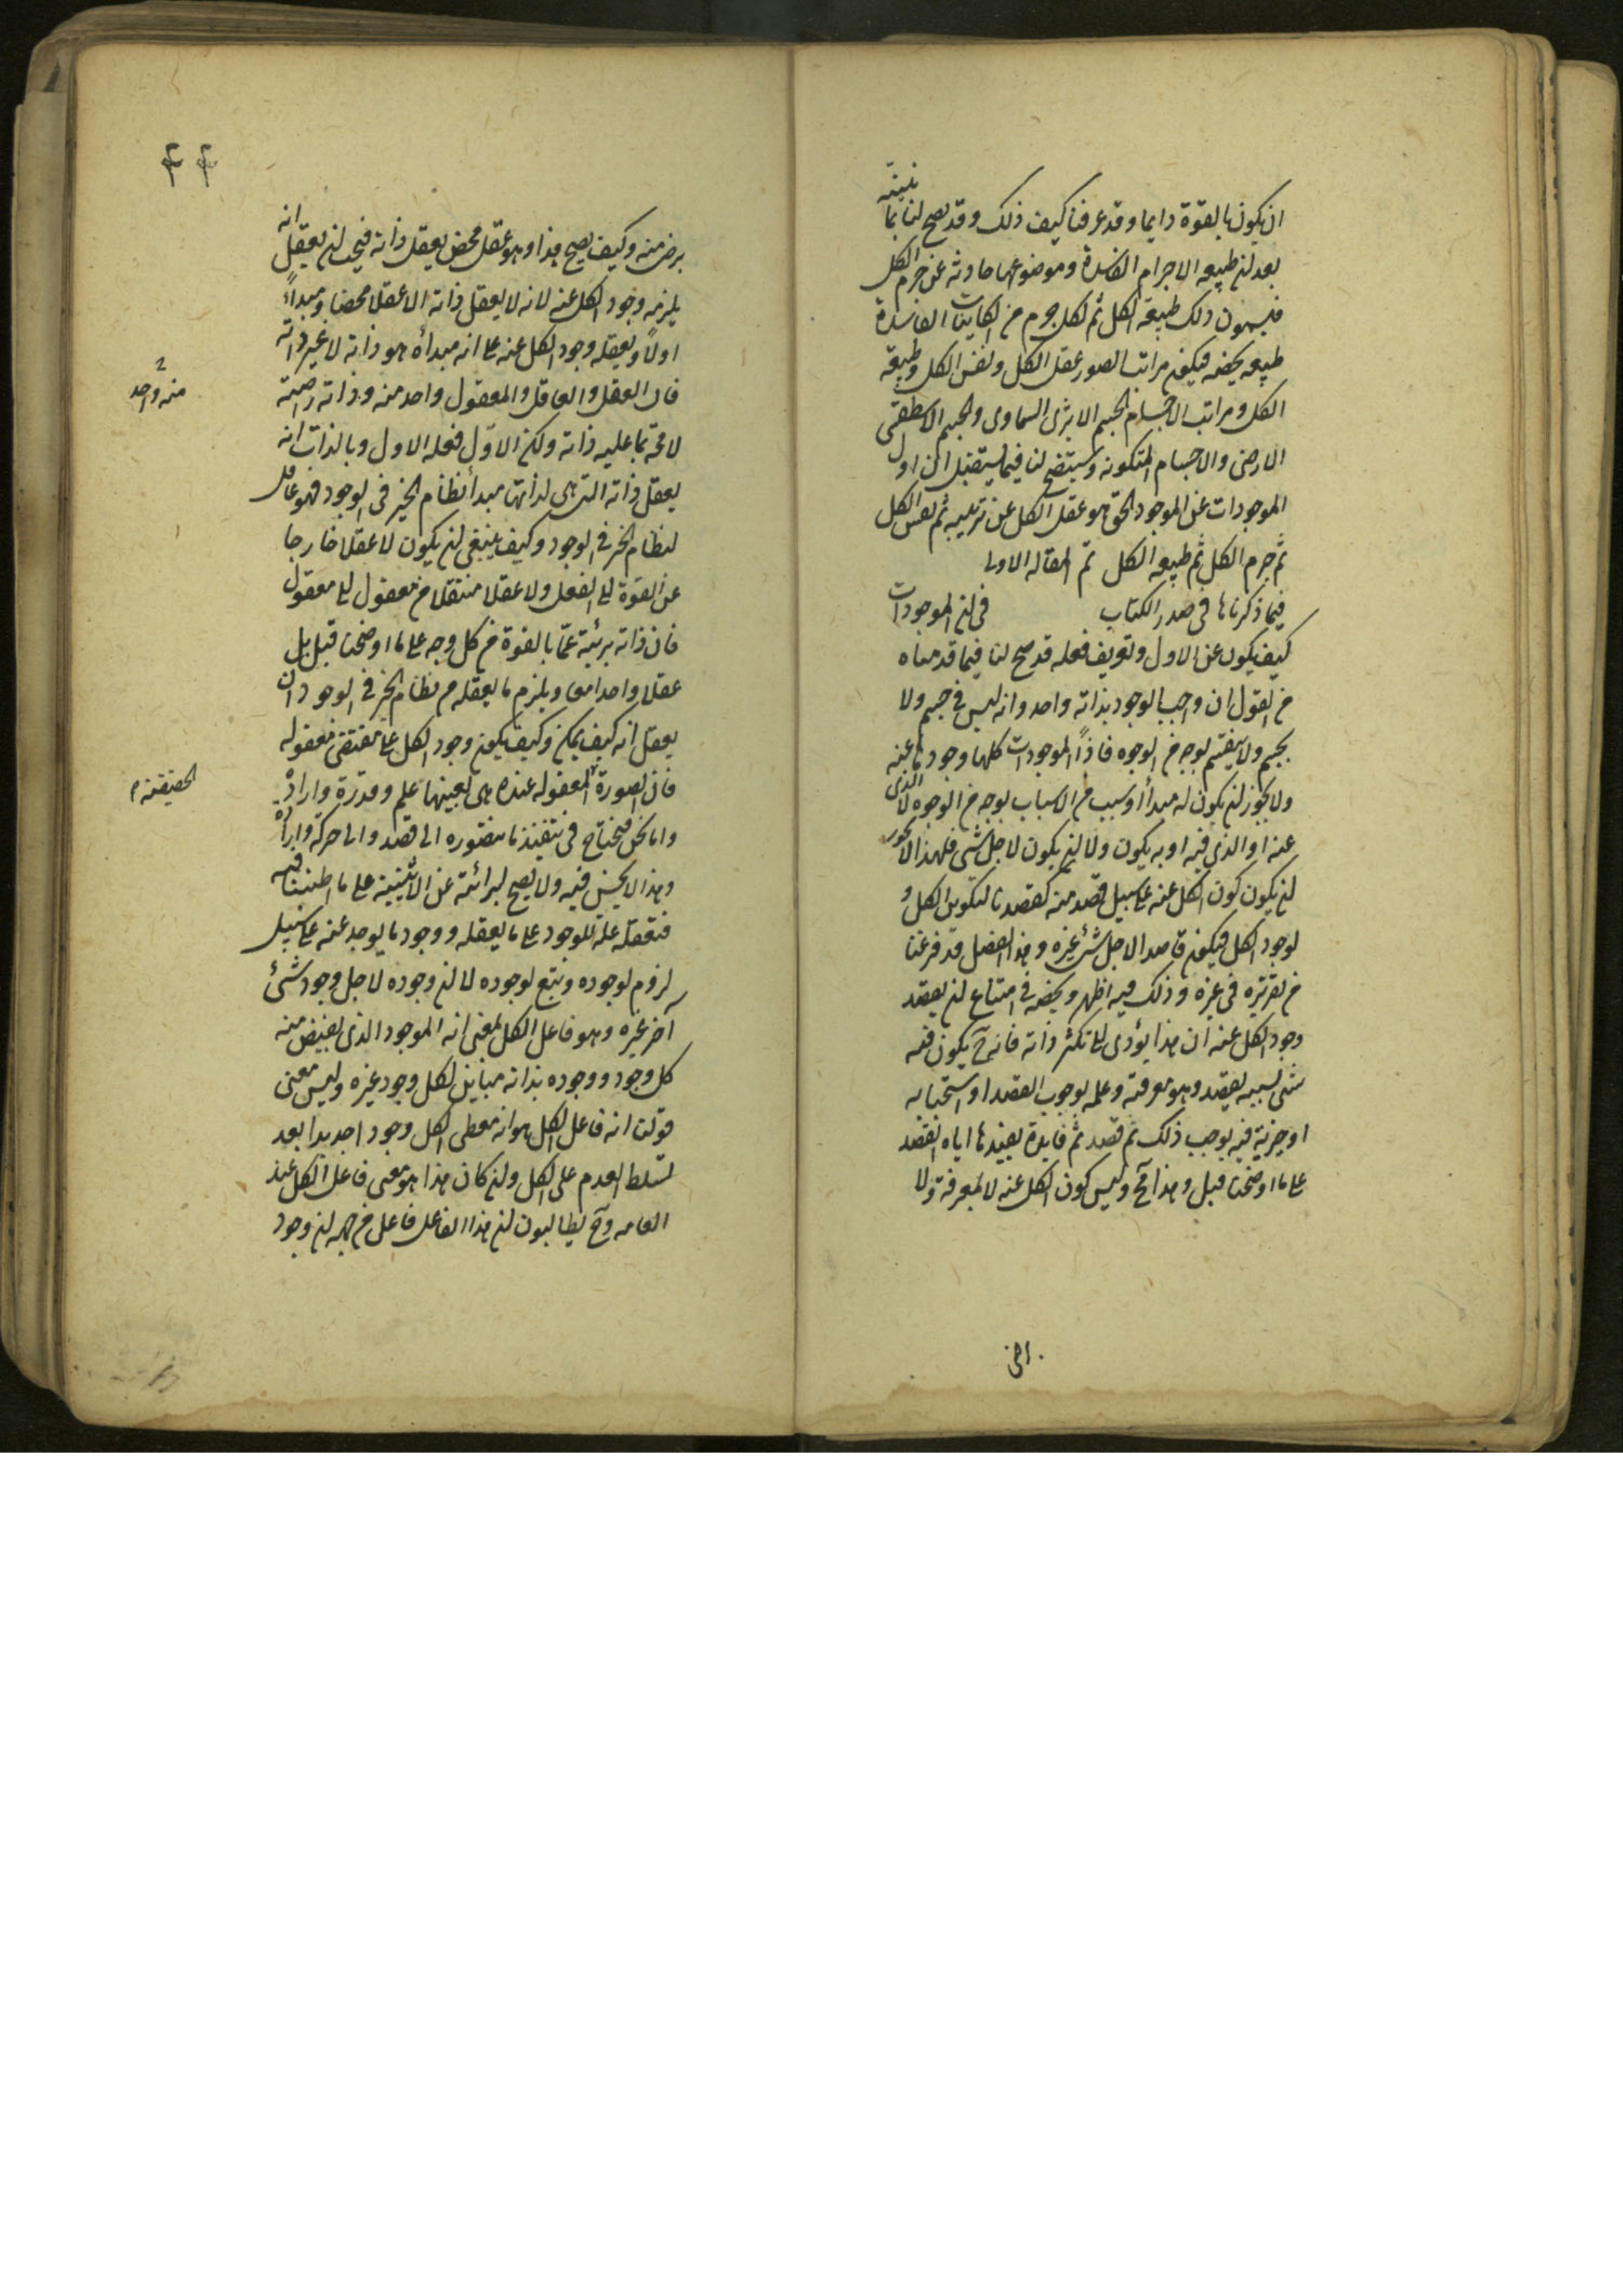 ان يكون بالقوة دايما وقد عرفنا كيف ذلك وقد يصح لنا بما نبينه
بعد ان طبيعه الاجرام الفاسدة وموضوعها حادثه عن جرم الكل
فيسمون ذلك طبيعة الكل ثم لكل جرم من الكاينات الفاسدة
طبيعه يخصه فيكون مراتب الصور عقل الكل ونفس الكل وطبيعة
الكل ومراتب الاجسام الجسم الاثيرى السماوى والجسم الاسطقسى
الارضى والاجسام المتكونه وسيتضح لنا فيما يستقبل ان اول
الموجودات عن الموجود الحق هو عقل الكل عن ترتيبه ثم نفس الكل
ثم جرم الكل ثم طبيعه الكل تم المقاله الاولى
فيما ذكرناها فى صدر الكتاب فى ان الموجودات
كيف يكون عن الاول وتعريف فعله قد صح لنا فيما قدمناه
من القول ان واجب الوجود بذاته واحد وانه ليس فى جسم ولا
بجسم ولا ينقسم بوجه من الوجوه فاذا الموجودات كلها وجودها عنه
ولا يجوز ان يكون له مبدأ او سبب من الاسباب بوجه من الوجوه لا الذى
عنه او الذى فيه او به يكون ولا ان يكون لاجل شى فلهذا لا يجوز
ان يكون كون الكل عنه على سبيل قصد منه كقصدنا لتكوين الكل و
لوجود الكل فيكون قاصدا لاجل شئ غيره وهذا الفصل قد فرغنا
من تقريره فى غيره وذلك فيه اظهر ويخصه فى امتناع ان يقصد
وجود الكل عنه ان هذا يؤدى الى تكثر ذاته فانه ح يكون فيه
شى بسببه يقصد وهو معرفته وعلمه بوجوب القصد او استحبابه
او خيرية فيه يوجب ذلك ثم قصد ثم فايدة يفيدها اياه القصد
على ما اوضحنا قبل وهذا مح وليس كون الكل عنه لا لمعرفة ولا
رضى
۴۴
برضى منه وكيف يصح هذا وهو عقل محض يعقل ذاته فيجب ان يعقل انه
يلزمه وجود الكل عنه لانه لا يعقل ذاته الا عقلا محضا ومبدأً
اولاً ويعقله وجود الكل عنه على انه مبدأه هو ذاته لا غير ذاته
فان العقل والعاقل والمعقول واحد منه وذاته راضية
منه واحد
لا محة بما عليه ذاته ولكن الاول فعله الاول وبالذات انه
يعقل ذاته التى هى لذاتها مبدأ نظام الخير فى الوجود فهو عاقل
لنظام الخير فى الوجود وكيف ينبغى ان يكون لا عقلا خارجا
عن القوة الى الفعل ولا عقلا منتقلا من معقول الى معقول
فان ذاته بريئة عما بالقوة من كل وجه على ما اوضحنا قبل بل
عقلا واحدا معا ويلزم ما يعقله من نظام الخير فى الوجود ان
يعقل انه كيف يمكن وكيف يكون وجود الكل على مقتضى معقوله
فان الصورة المعقوله عنده هى بعينها علم وقدرة وارادة
الحقيقة
واما نحن فنحتاج فى تنفيذ ما نتصوره الى قصد والى حركة وارادة
وهذا لا يحسن فيه ولا يصح لبرائته عن الاثنينية على ما اطنبنا فيه
فتعقله علة للوجود على ما يعقله ووجود ما يوجد عنه على سبيل
لزوم لوجوده وتبع لوجوده لا ان وجوده لاجل وجود شئ
آخر غيره وهو فاعل الكل بمعنى انه الموجود الذى يفيض منه
كل وجود ووجوده بذاته مباين لكل وجود غيره وليس معنى
قولنا انه فاعل الكل هو انه معطى الكل وجودا جديدا بعد
تسلط العدم على الكل وان كان هذا هو معنى فاعل الكل عند
العامه وح يطالبون ان هذا الفاعل فاعل من جهه ان وجود